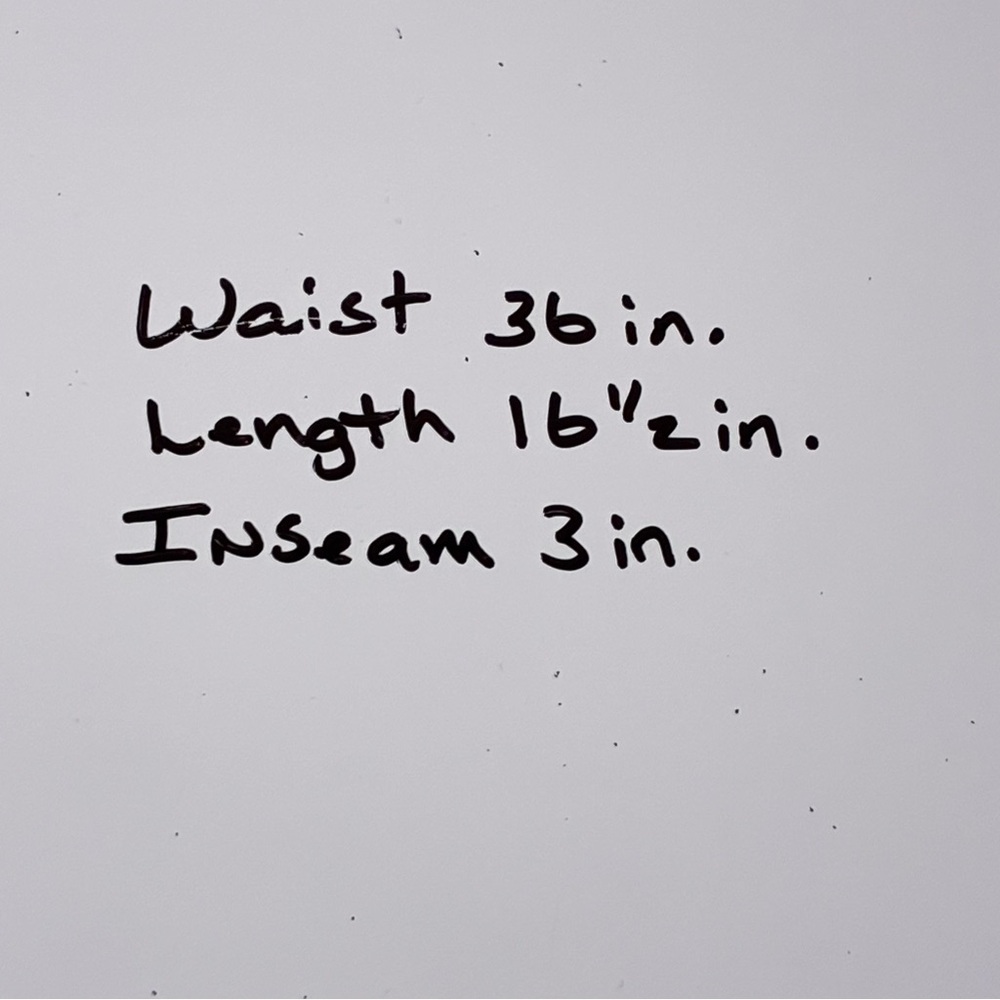 Waist 36 in.
Length 16 1/2 in.
Inseam 3 in.